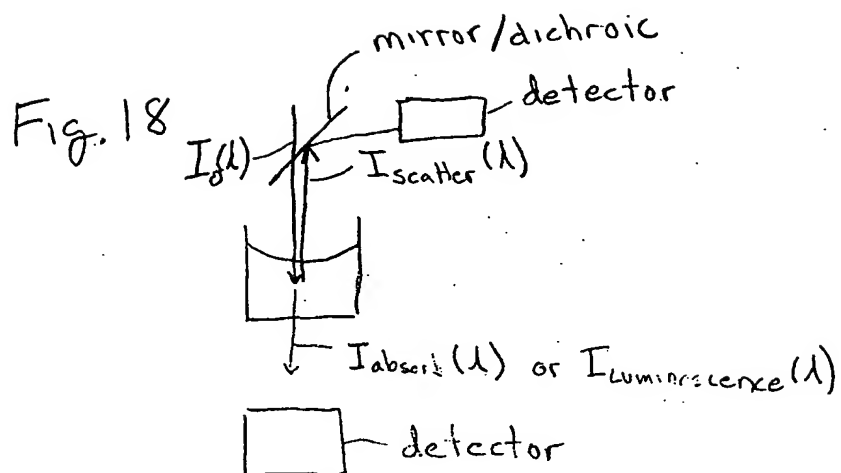 mirror/dichroic
detector
Fig. 18
I₀(λ)
I scatter (λ)
I absorb (λ) or I Luminescence (λ)
detector